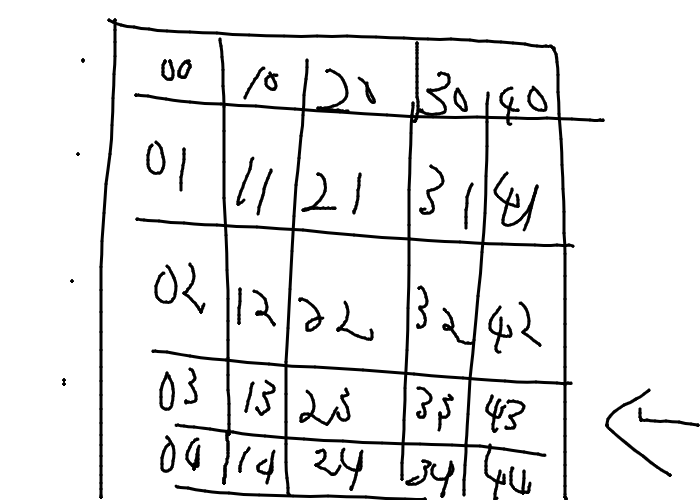 00 10 20 30 40
01 11 21 31 41
02 12 22 32 42
03 13 23 33 43
04 14 24 34 44